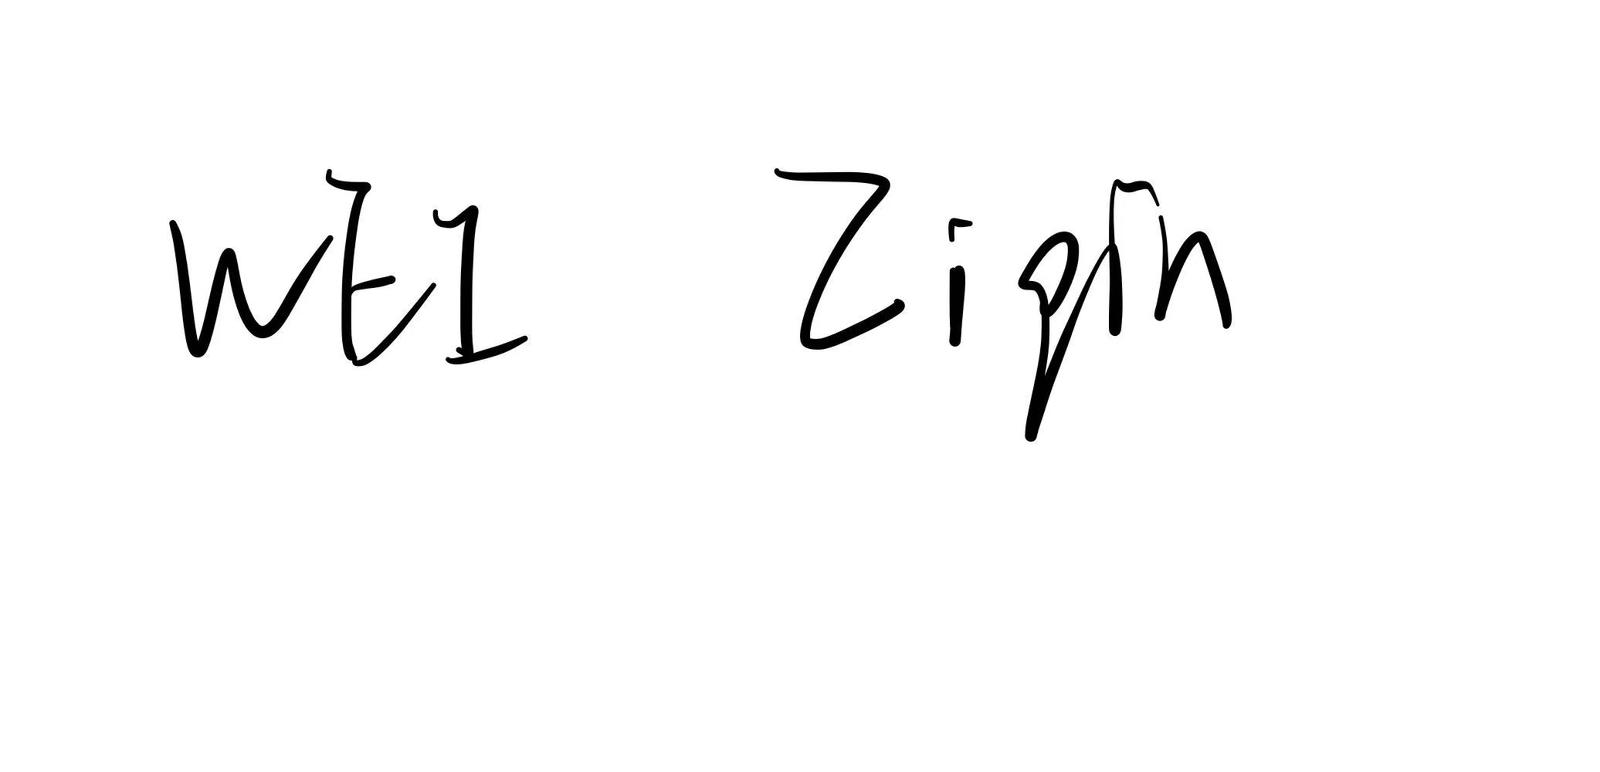 WEI Ziqin